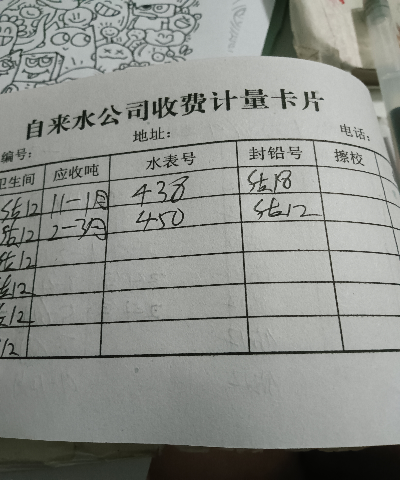 自来水公司收费计量卡片
编号： 地址： 电话：
卫生间 应收吨 水表号 封铅号 擦校
估12 11-1月 438 估18
估12 2-3月 450 估12
估12
估12
估12
12